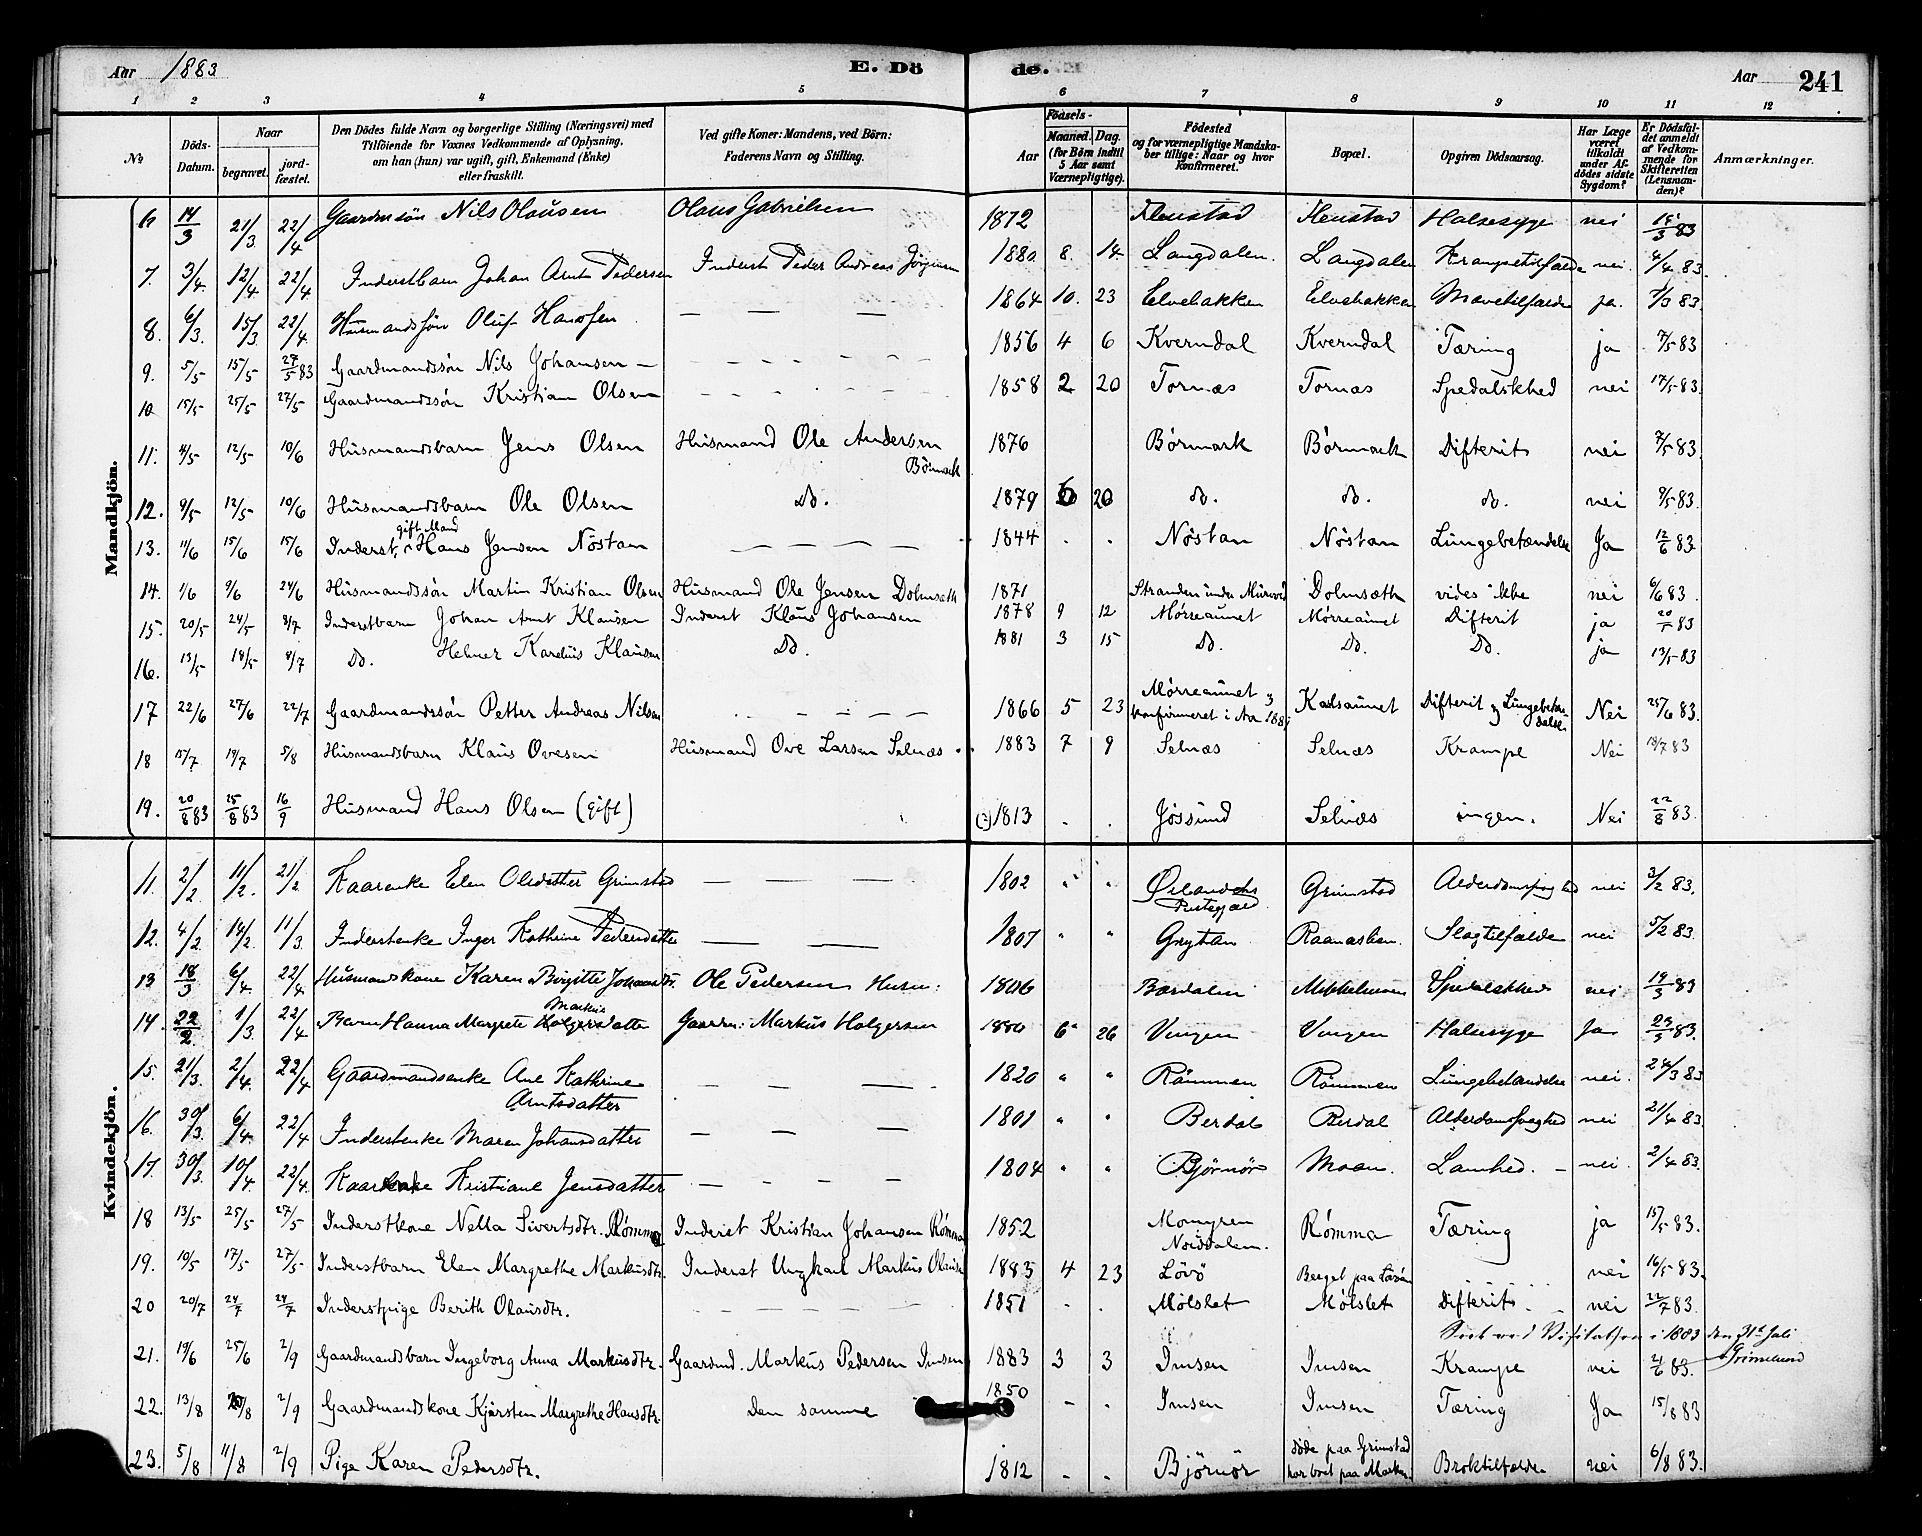 Aar 1883 E. Dö de. Aar 241
1 2 3 4 5 6 7 8 9 10 11 12
No. Döds-Datum. Naar begravet. jordfæstet. Den Dödes fulde Navn og borgerlige Stilling (Næringsvei) med Tilföiende for Voxnes Vedkommende af Oplysning, om han (hun) var ugift, gift, Enkemand (Enke) eller fraskilt. Ved gifte Koner: Mandens, ved Börn: Faderens Navn og Stilling. Födsels- Aar Maaned. Dag. (for Börn indtil 5 Aar samt Værnepligtige). Födested og for værnepligtige Mandskaber tillige: Naar og hvor konfirmeret. Bopæl. Opgiven Dödsaarsag. Har Læge været tilkaldt under Afdödes sidste Sygdom? Er Dödsfaldet anmeldt af Vedkommende for Skifteretten (Lensmanden)? Anmærkninger.
Mandkjön.
6 14/3 21/3 22/4 Gaardmsön Nils Olausen Olaus Gabrielsen 1872 Henstad Henstad Halsesyge nei 15/3 83
7. 3/4 12/4 22/4 Inderstbarn Johan Arnt Pedersen Inderst Peder Andreas Jörgensen 1880 8. 14 Langdalen. Langdalen Krampetilfælde nei. 4/4 83.
8. 6/3. 15/3. 22/4. Husmandssön Oluf Hansen — — — 1864 10. 23 Elvebakken Elvebakken Mavetilfælde ja. 7/3 83.
9. 5/5 15/5 27/5 83 Gaardmandssön Nils Johansen — 1856 4 6 Kverndal Kverndal Tæring ja 7/5 83
10 15/5 25/5 27/5 Gaardmandssön Kristian Olsen 1858 2 20 Tornæs Tornæs Spedalskhed nei 17/5 83.
11. 4/5 12/5 10/6 Husmandsbarn Jens Olsen Husmand Ole Andersen Börmark 1876 Börmark Börmark Difterit nei 7/5 83
12. 9/5 12/5 10/6 Husmandsbarn Ole Olsen Do. 1879 6 20 do. do. do. nei 9/5 83.
13. 11/6 15/6 15/6 Inderst, gift Mand Hans Jensen Nöstan — — — 1844 . . Nöstan Nöstan Lungebetændelse Ja 12/6 83
14. 1/6 9/6 24/6 Husmandssön Martin Kristian Olsen Husmand Ole Jensen Dolmsæth 1871 Stranden under Dolmsæth vides ikke nei 6/6 83.
15. 20/5 24/5 8/7 Inderstbarn Johan Arnt Klausen Inderst Klaus Johansen 1878 9 12 Mörreaunet Mörreaunet Difterit ja 20/5 83
16. 13/5 18/5 8/7 Do. Helmer Kareluis Klausen Do. 1881 3 15 Do. Do. Do. ja 13/5 83
17 22/6 27/6 22/7 Gaardmandssön Petter Andreas Nilsen 1866 5 23 Mörreaunet konfirmeret i Aar 1883 Karlsaunet Difterit og Lungebetændelse Nei 25/6 83.
18 15/7 19/7 5/8 Husmandsbarn Klaus Ovesen Husmand Ove Larsen Selnæs 1883 7 9 Selnæs Selnæs Krampe Nei 18/7 83
19. 20/8 83 25/8 83 16/9 Husmand Hans Olsen (gift) 1813 . . Jössund Selnæs ingen. Nei 22/8 83.
Kvindekjön.
11. 2/2 11/2. 21/2 Kaarenke Elen Olsdatter Grimstad — — — 1802 " " Ørlandets Prestegjæld Grimstad Alderdomssvaghed nei 3/2 83.
12. 4/2 14/2. 11/3. Inderstenke Inger Kathrine Pedersdatter — — 1807 " " Grytan Raanaslien. Slagtilfælde nei 5/2 83.
13 18/3 6/4 22/4 Husmandskone Karen Birgitte Johansdtr. Ole Pedersen Husm: 1806 Bærdalen Spedalskhed nei 19/3 83
14. 22/2. 1/3. 22/4 Barn Hanna Margrete Markus Holgersdatter Gaardm: Markus Holgersen 1880 6" 26 Vingen Vingen Halsesyge Ja 83.
15. 21/3. 2/4. 22/4 Gaardmandsenke Ane Kathrine Arntsdatter — — — 1820 " " Römmen Römmen Lungebetændelse nei. 24/3 83
16. 30/3. 6/4 22/4 Inderstenke Maren Johansdatter — — — 1801 " " Berdal Berdal Alderdomssvaghed nei 2/4 83.
17. 30/3. 10/4 22/4. Kaarenke Kristiane Jensdatter — — — — 1804 " " Bjørnør Moan. Lamhed. — nei. 2/4 83.
18 13/5 25/5 27/5 Inderstkone Nella Sivertsdtr. Römma Inderst Kristian Johansen Römma 1852 Momyren Norddalen. Römma Tæring ja 15/5 83.
19. 10/5 17/5 27/5 Inderstbarn Elen Margrethe Markusdtr. Inderst Ungkarl Markus Olausen 1883 4 23 Lövö Berget paa Lövön nei 16/5 83.
20 20/7 24/7 24/7 Inderstpige Berith Olausdtr. 1851 . . Mölslet Mölslet Difterit. nei 22/7 83.
Seet ved Visitatsen i 1883 den 31te Juli Grimelund
21. 19/6 25/6 2/9 Gaardmandsbarn Ingeborg Anna Markusdtr. Gaardmd. Markus Pedersen Imsen 1883 3 3 Imsen Imsen Krampe nei 21/6 83.
22. 13/8 20/8 2/9 Gaardmandskone Kjersten Margrethe Hansdtr. den samme 1850 - . Imsen Imsen Tæring Ja 15/8 83
23. 5/8 11/8 2/9 Pige Karen Pedersdtr. 1812 - . Björnör döde paa Grimstad har boet paa Broktilfælde nei 6/8 83.